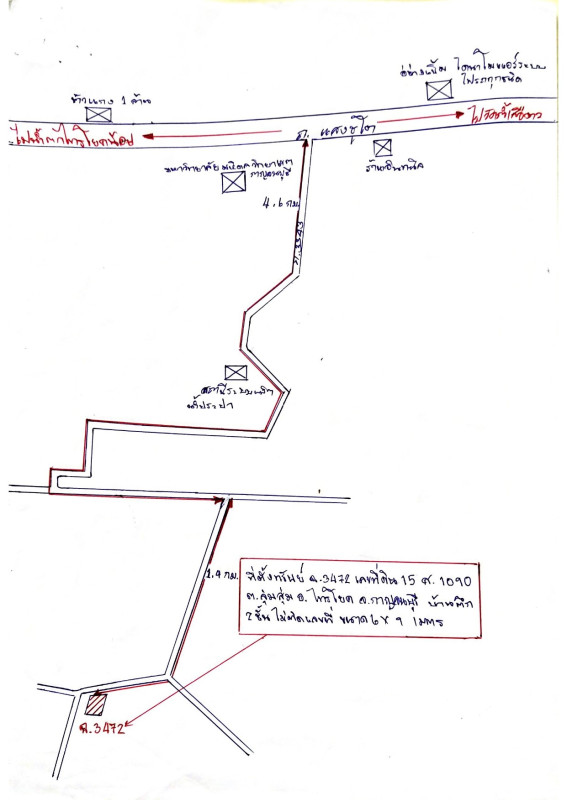 อู่ช่างเปี้ยม ไดนาโมแอร์ระบบ
ไฟรถทุกชนิด
ข้าวแกง 1 ล้าน
ไปน้ำตกไทรโยคน้อย
ถ. แสงชูโต
ไปวัดถ้ำเสือดาว
มหาวิทยาลัยมหิดลวิทยาเขต
กาญจนบุรี
ร้านอินทนิล
4.6 กม.
ถ.3343
สถานีระบบผลิต
น้ำประปา
1.9 กม.
ที่ตั้งทรัพย์ ฉ.3472 เลขที่ดิน 15 ส. 1090
ต.ลุ่มสุ่ม อ. ไทรโยค จ.กาญจนบุรี บ้านตึก
2 ชั้น ไม่ติดเลขที่ ขนาด 6 x 9 เมตร
ฉ.3472